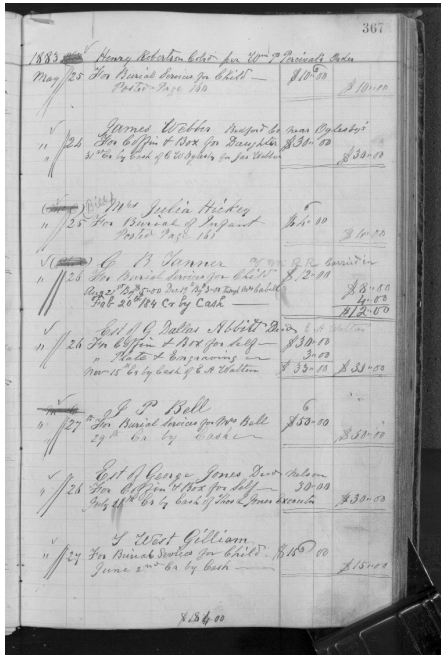 367
1883 Henry Robertson Cold per Wm P Percivals Order
May 25 For Burial Services for Child — $10"00
Posted Page 160 $10"00
James Webber Bedford Co near Oglesby's
" 24 For Coffin & Box for Daughter $30"00
31st Cr by Cash of Oglesby for Jas Walton $30"00
(Bill) Mrs Julia Hickey
" 25 For Burial of Infant
Posted Page 165
C B Tanner
" 26 For Burial Services for Child $12"00
Aug 21st By 5"00 $8"00
Feb 20th 184 Cr by Cash — 4"00
$12"00
Est of G Dallas Abbitt Decd E A Walton
" 26 For Coffin & Box for Self — $30"00
" Plate & Engraving — 3"00
Nov 15th Cr by Cash of E A Walton $33"00 $33"00
J P Bell
" 27th For Burial Services for Mrs Bell $50"00
29th Cr by Cash $50"00
Est of George Jones Decd Nelson
" 26 For Coffin & Box for Self — 30"00
July 28th Cr by Cash of Thos Jones Executor $30"00
T West Gilliam
" 27 For Burial Services for Child. $15"00
June 2nd Cr by Cash — $15"00
$184"00